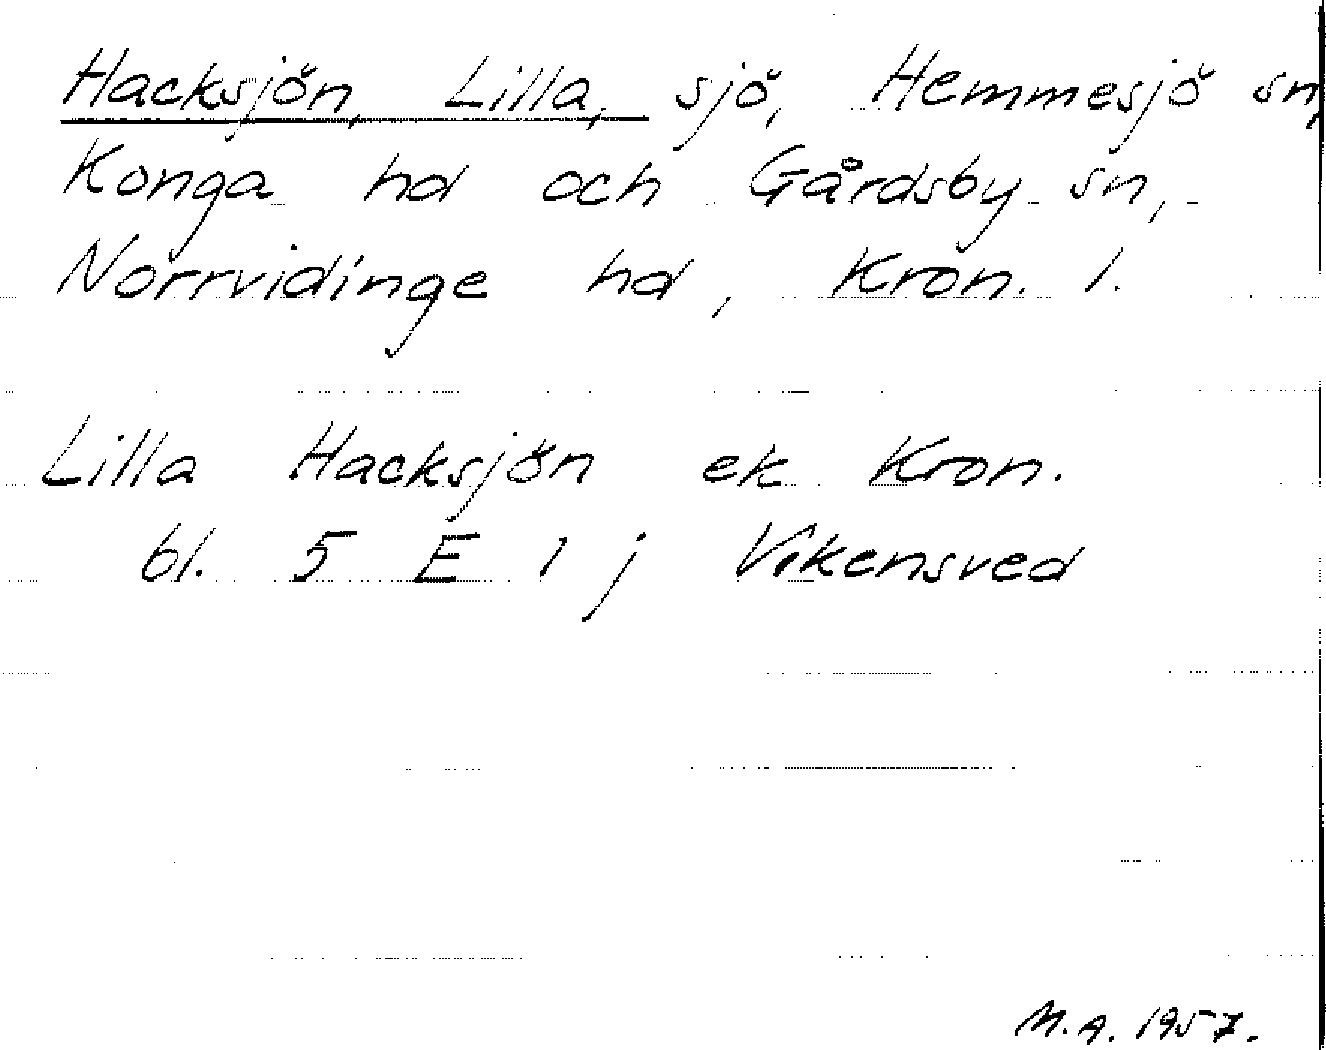 Hacksjön, Lilla, sjö, Hemmesjö sn,
Konga hd och Gårdsby sn,
Norrvidinge hd, Kron. l.
Lilla Hacksjön ek Kron.
bl. 5 E 1 j Vikensved
M.A. 1957.